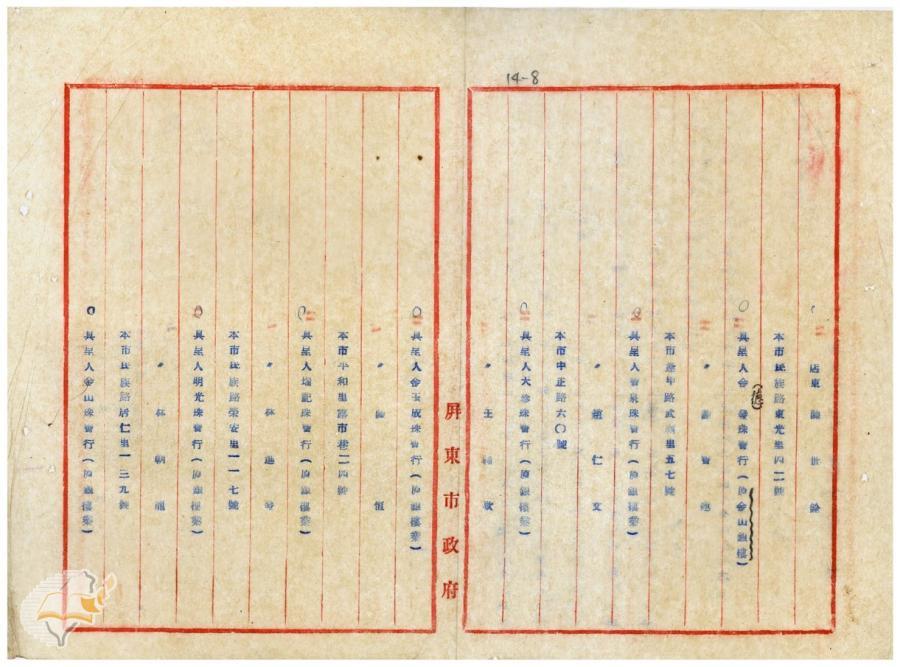 14-8
店東
本市民族路東光里四二號
具呈人金(德)發珠寶行(原金山銀樓)
本市逢甲路武廟里五七號
具呈人寶泉珠寶行(原銀樓業)
趙仁文
本市中正路六〇號
具呈人大珍珠寶行(原銀樓業)
王
屏東市政府
具呈人金玉成珠寶行(原銀樓業)
本市平和里路市巷二四號
具呈人瑞記珠寶行(原銀樓業)
林進
本市民族路榮安里一一七號
具呈人明光珠寶行(原銀樓業)
林朝
本市民族路居仁里一三九號
具呈人金山珠寶行(原銀樓業)